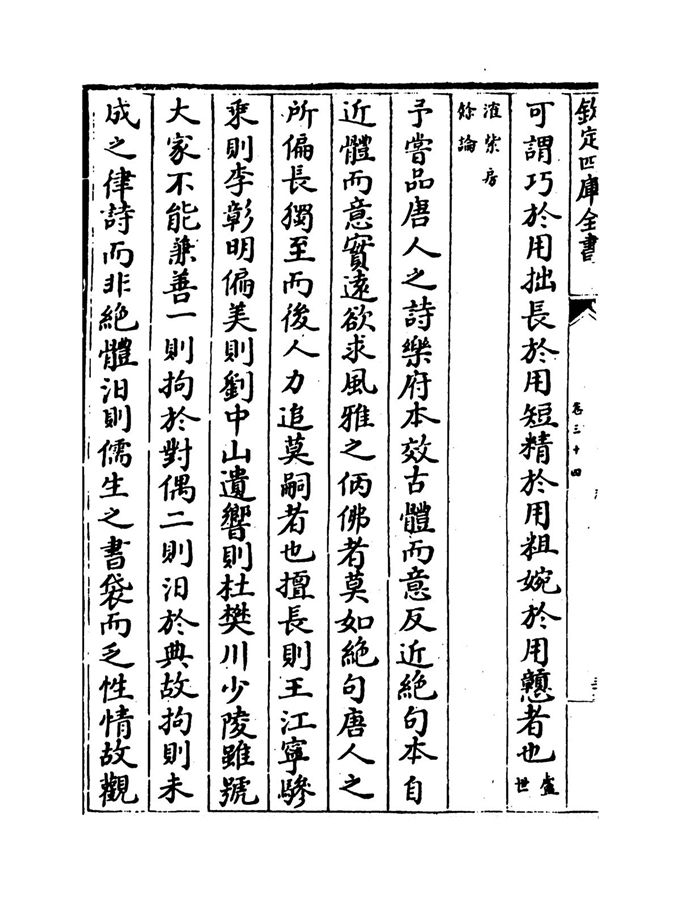 欽定四庫全書
卷三十四
可謂巧於用拙長於用短精於用粗婉於用戇者也盧世
㴶紫房
餘論
予嘗品唐人之詩樂府本效古體而意反近絶句本自
近體而意實遠欲求風雅之仿佛者莫如絶句唐人之
所偏長獨至而後人力追莫嗣者也擅長則王江寧驂
乘則李彰明偏美則劉中山遺響則杜樊川少陵雖號
大家不能兼善一則拘於對偶二則汨於典故拘則未
成之律詩而非絶體汨則儒生之書袋而乏性情故觀